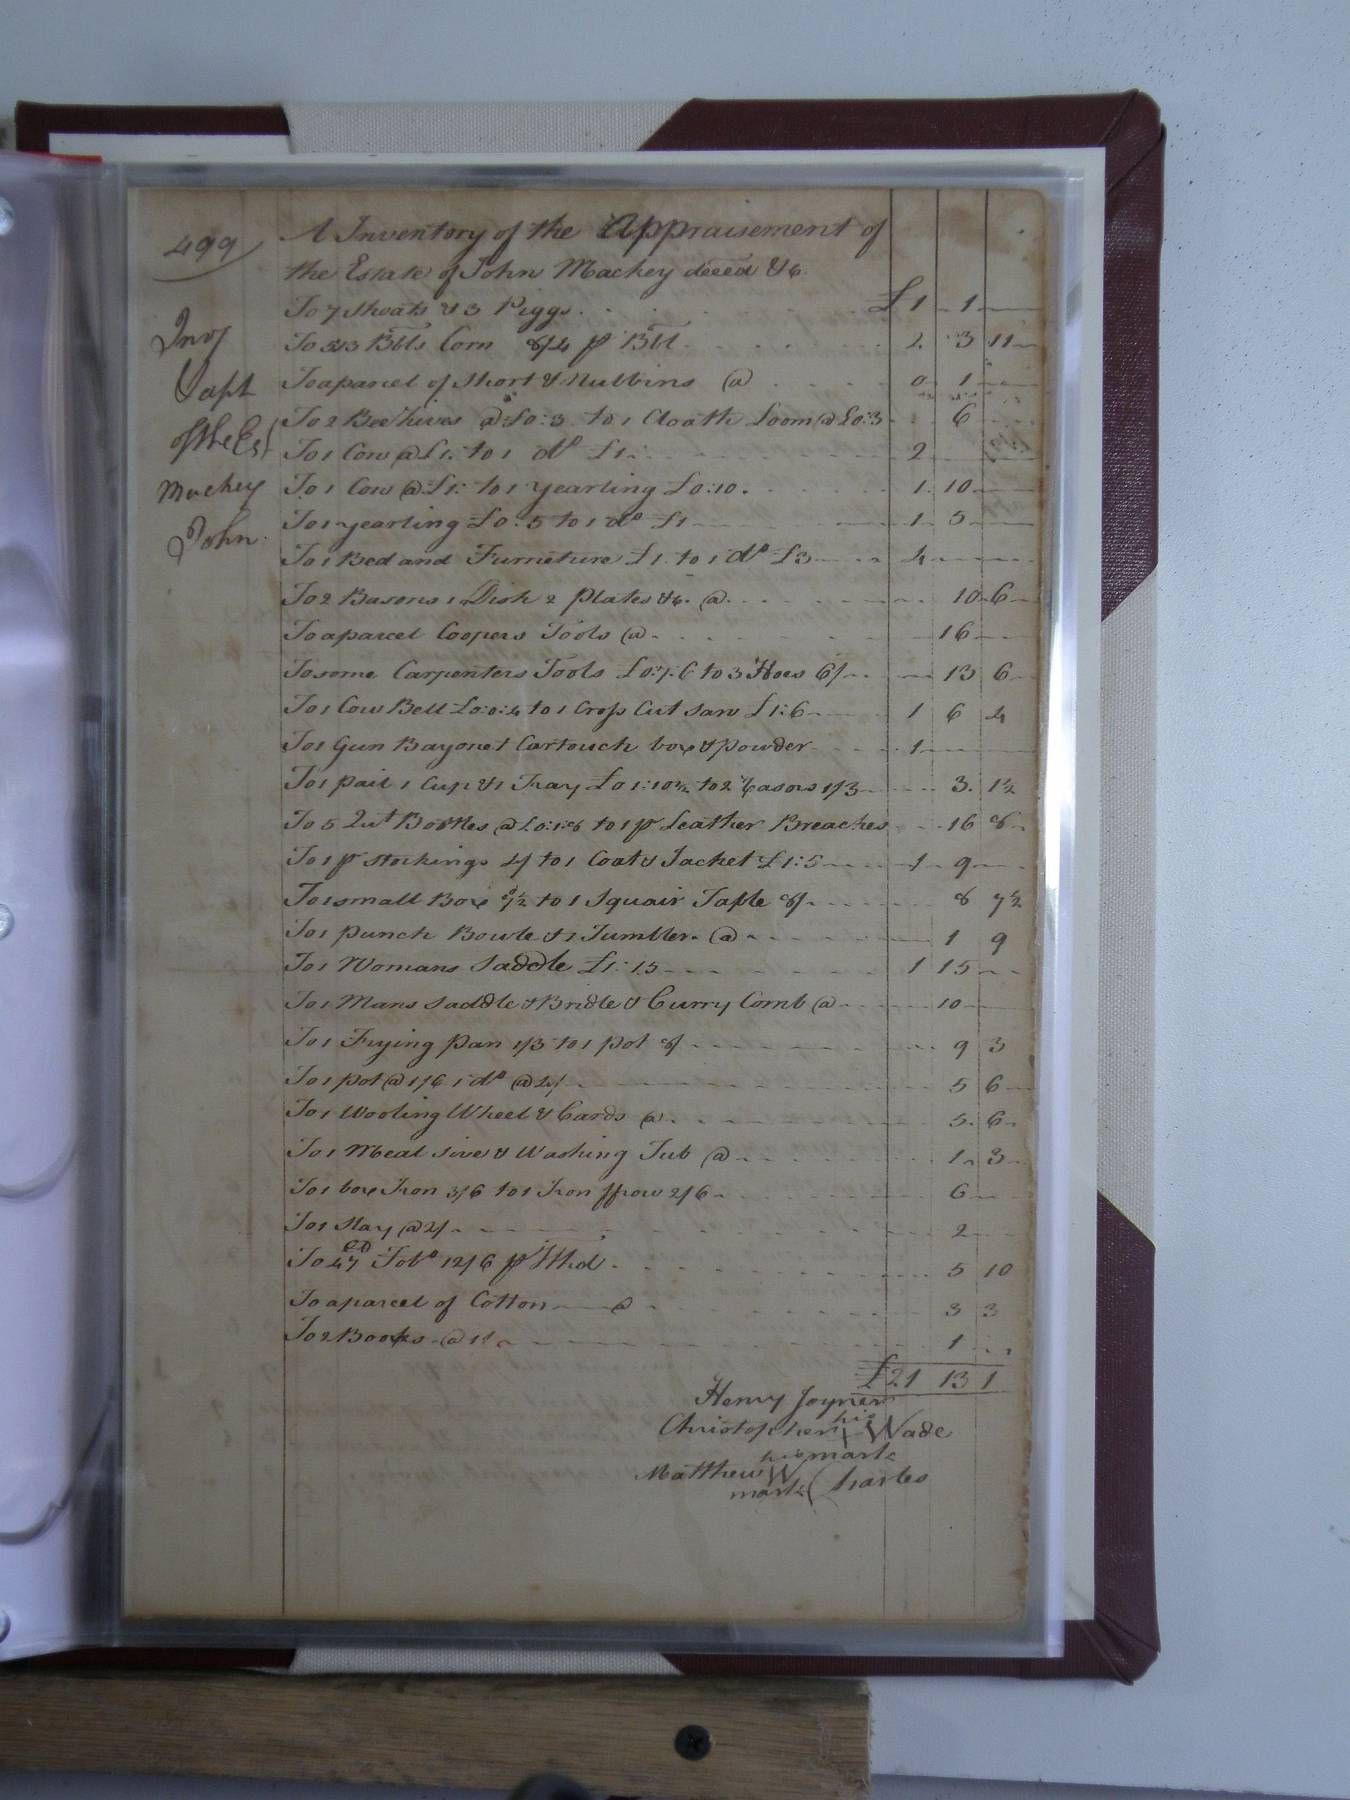 499
A Inventory of the Appraisement of
the Estate of John Mackey deced &c.
Inv
& apt
of the Est
Mackey
John.
To 7 Shoats & 3 Piggs. £ 1 1
To 5 1/3 Bbls Corn 8/4 p Bbl 2 3 11
To a parcel of Short & Nubbins @ 0 1
To 2 Bee hives @ £0:3 to 1 Cloath Loom @ £0:3 6
To 1 Cow @ £1. to 1 do £1 2
To 1 Cow @ £1: to 1 yearling £0:10. 1 10
To 1 yearling £0:5 to 1 do £1 1 5
To 1 Bed and Furneture £1 to 1 do £3 4
To 2 Basons 1 Dish 2 plates &c. @ 10 6
To a parcel Coopers Tools @ 16
To some Carpenters Tools £0:7:6 to 3 Hoes 6/ 13 6
To 1 Cow Bell £0:0:4 to 1 Cross Cut Saw £1:6 1 6 4
To 1 Gun Bayonet Cartouch box & powder 1
To 1 pail 1 Cup & 1 Tray £0 1:10½ to 2 Basons 1/3 3. 1½
To 5 Qut Bottles @ £0:1:8 to 1 p Leather Breaches 16 8
To 1 p stockings 4/ to 1 Coat & Jacket £1:5 1 9
To 1 small Box 7½ to 1 Squair Table 8/ 8 7½
To 1 punch Bowle & 1 Tumbler. @ 1 9
To 1 Womans Saddle £1:15 1 15
To 1 Mans Saddle & Bridle & Curry Comb @ 10
To 1 Frying pan 1/3 to 1 pot 8/ 9 3
To 1 pot @ 1/6 1 do @ 4/ 5 6
To 1 Wooling Wheel & Cards @ 5. 6
To 1 Meal sive & Washing Tub @ 1 3
To 1 box Iron 3/6 to 1 Iron ffrow 2/6 6
To 1 Slay @ 2/ 2
To 47 Tobo 12/6 p Hhd 5 10
To a parcel of Cotton @ 3 3
To 2 Books @ 1/ 1
£21 13 1
Henry Joyner
his
Christopher X Wade
mark
his
Matthew W Charles
mark